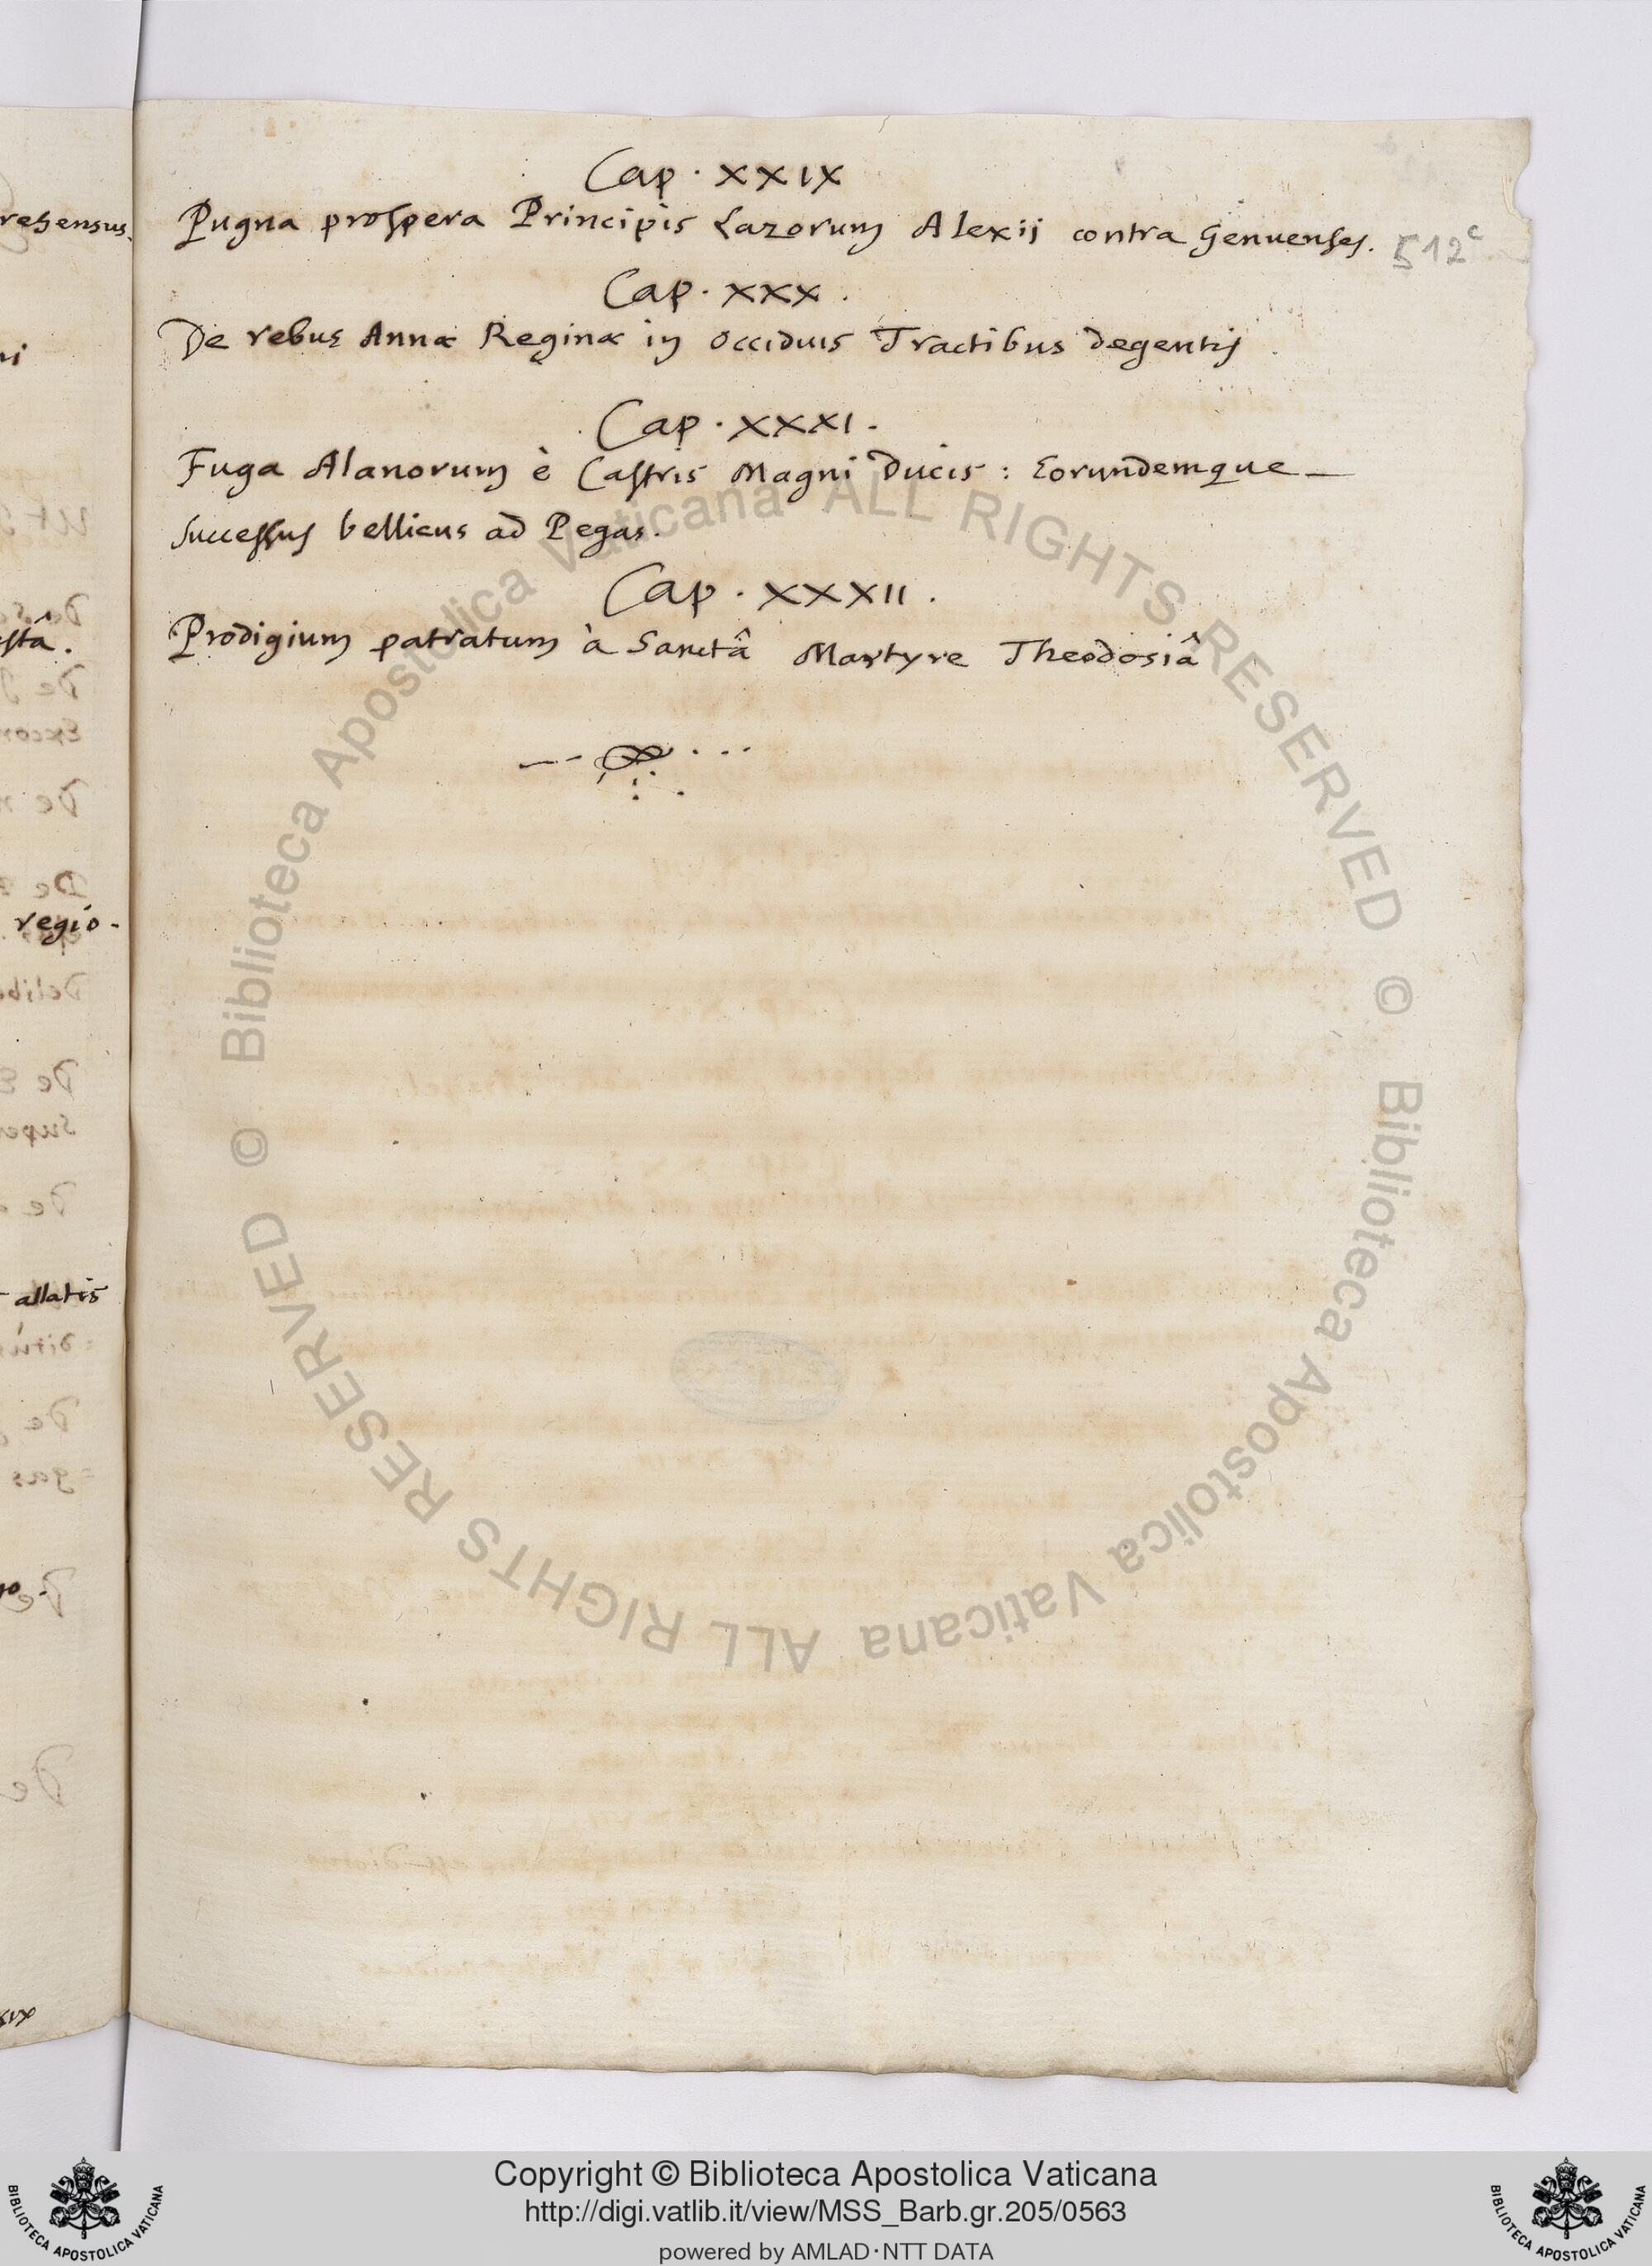 Cap. XXIX
Pugna prospera Principis Lazorum Alexij contra Genuenses.
512c
Cap. XXX.
De rebus Annæ Reginæ in occiduis Tractibus degentis.
Cap. XXXI.
Fuga Alanorum è Castris Magni Ducis: Eorundemque
successus bellicus ad Pegas.
Cap. XXXII.
Prodigium patratum à Sanctâ Martyre Theodosiâ
rehensus.
regio.
allatis
xix
© Biblioteca Apostolica Vaticana ALL RIGHTS RESERVED
© Biblioteca Apostolica Vaticana ALL RIGHTS RESERVED
Copyright © Biblioteca Apostolica Vaticana
http://digi.vatlib.it/view/MSS_Barb.gr.205/0563
powered by AMLAD·NTT DATA
BIBLIOTECA APOSTOLICA VATICANA
BIBLIOTECA APOSTOLICA VATICANA